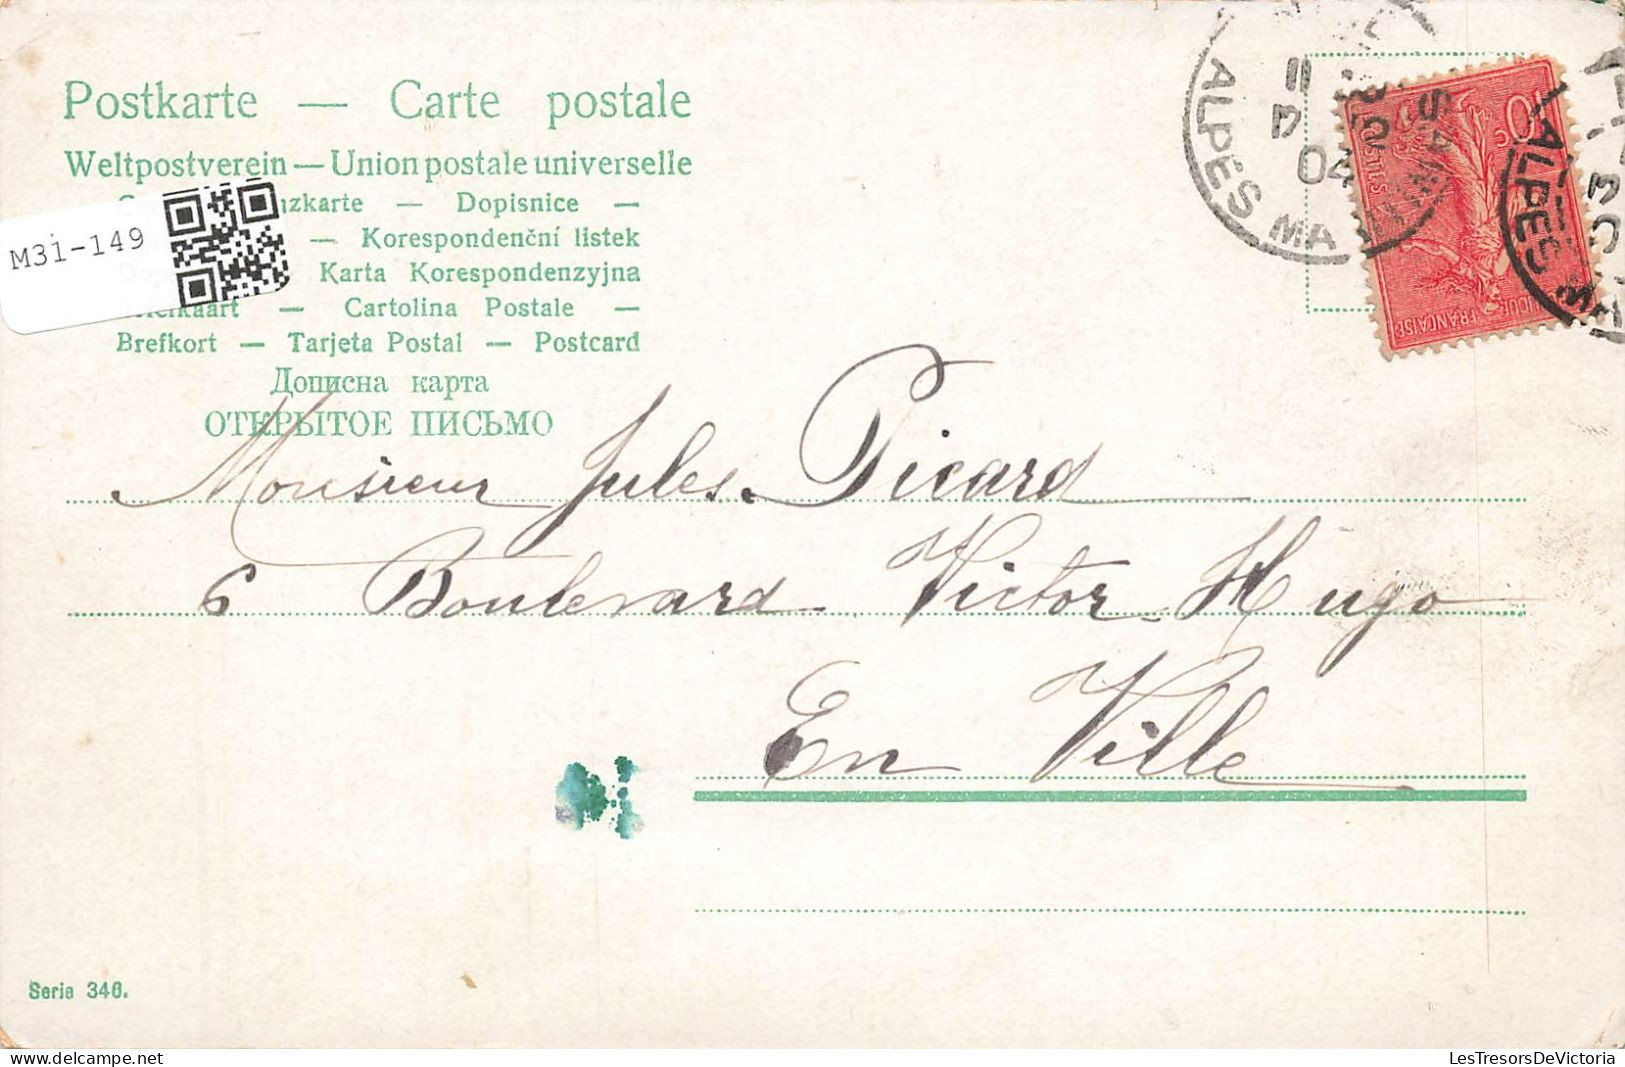 Postkarte — Carte postale
Weltpostverein — Union postale universelle
nzkarte — Dopisnice —
— Korespondenční listek
Karta Korespondenzyjna
— Cartolina Postale —
Brefkort — Tarjeta Postal — Postcard
Дописна карта
ОТКРЫТОЕ ПИСЬМО
M31-149
ALPES MA
11
04
10
FRANÇAISE
ALPES
03
Monsieur Jules Picard
6 Boulevard Victor Hugo
En Ville
Serie 346.
LesTresorsDeVictoria